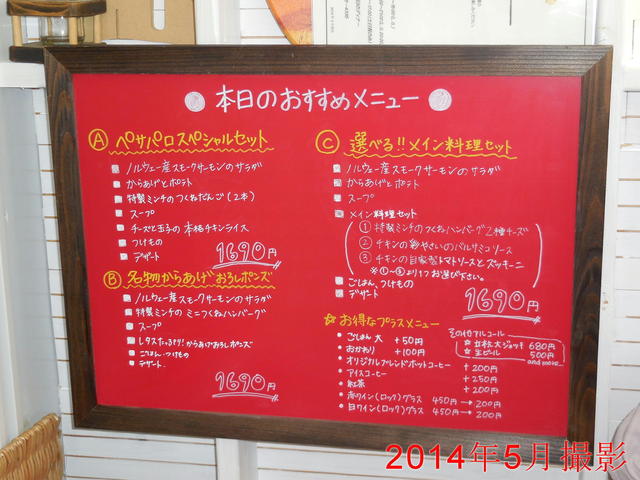 本日のおすすめメニュー
Ⓐ ペサパロスペシャルセット
ノルウェー産スモークサーモンのサラダ
からあげとポテト
特製ミンチのつくねだんご(2本)
スープ
チーズと玉子の本格チキンライス
つけもの
デザート
1690円
Ⓑ 名物からあげおろしポンズ
ノルウェー産スモークサーモンのサラダ
特製ミンチのミニつくねハンバーグ
スープ
からあげおろしポンズ
ごはん、つけもの
デザート
1690円
Ⓒ 選べる!!メイン料理セット
ノルウェー産スモークサーモンのサラダ
からあげとポテト
スープ
メイン料理セット
① 特製ミンチのつくねハンバーグ2種チーズ
② チキンの彩やさいのバルサミコソース
③ チキンの自家製トマトソースとズッキーニ
※①~③より1つお選び下さい。
ごはん、つけもの
デザート
1690円
☆お得なプラスメニュー
・ごはん 大 +50円
・おかわり +100円
・オリジナルブレンドホットコーヒー +200円
・アイスコーヒー +250円
・紅茶 +200円
・赤ワイン(ロック)グラス 450円→200円
・白ワイン(ロック)グラス 450円→200円
その他アルコール
☆大ジョッキ 680円
☆生ビール 500円
and more
2014年5月撮影